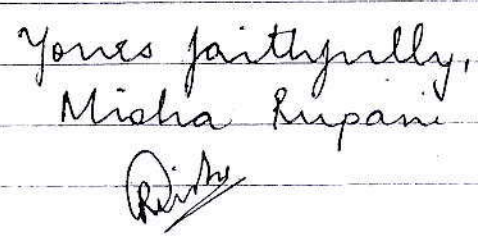 Yours faithfully,
Misha Rupani